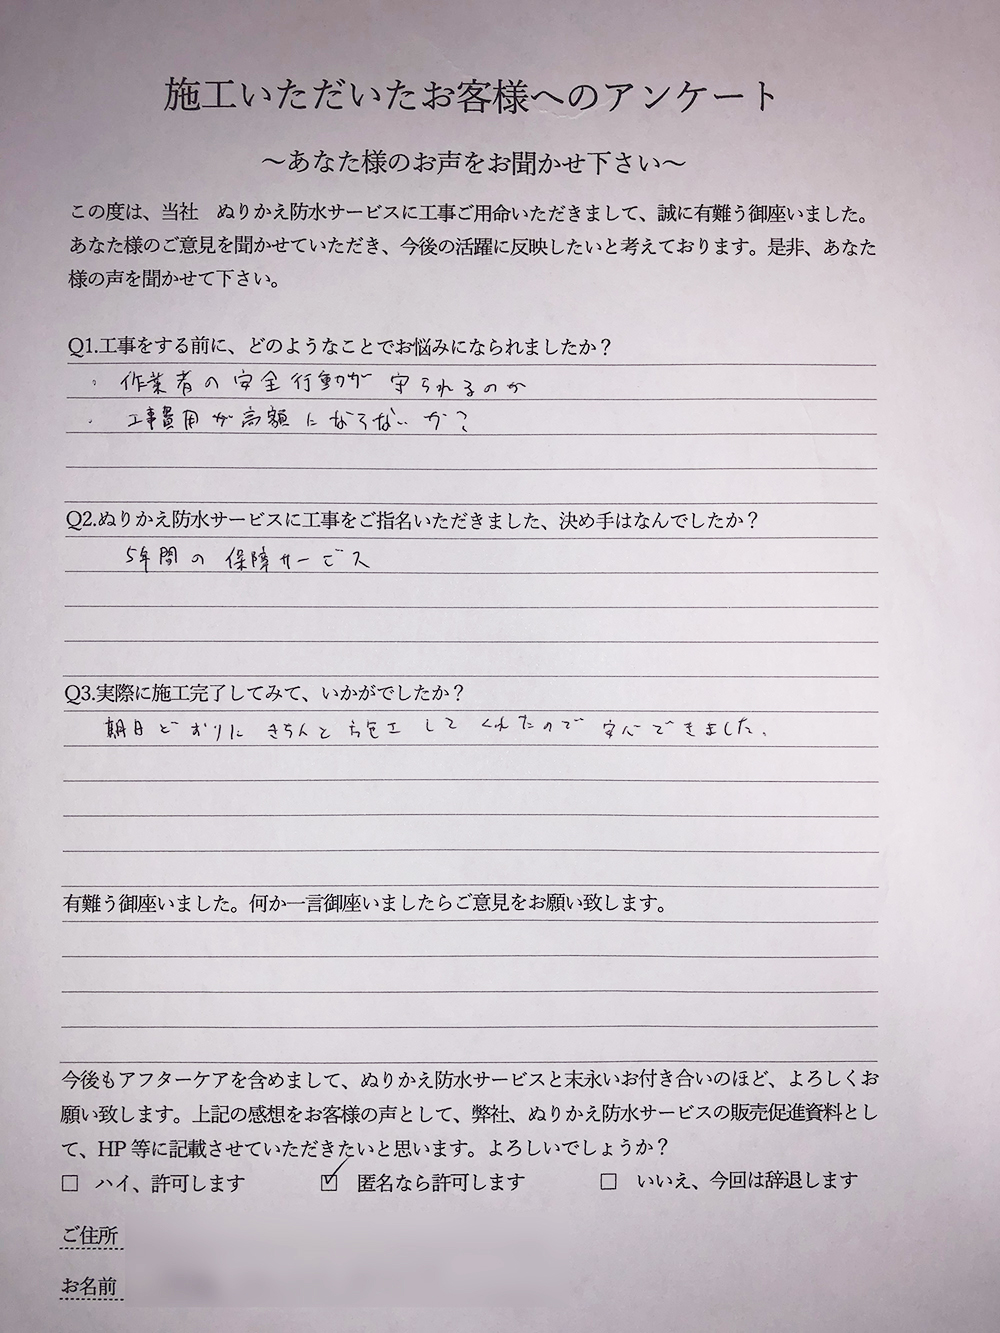 施工いただいたお客様へのアンケート
～あなた様のお声をお聞かせ下さい～
この度は、当社　ぬりかえ防水サービスに工事ご用命いただきまして、誠に有難う御座いました。
あなた様のご意見を聞かせていただき、今後の活躍に反映したいと考えております。是非、あなた
様の声を聞かせて下さい。
Q1.工事をする前に、どのようなことでお悩みになられましたか？
・作業者の安全行動が守られるのか
・工事費用が高額にならないか？
Q2.ぬりかえ防水サービスに工事をご指名いただきました、決め手はなんでしたか？
5年間の保障サービス
Q3.実際に施工完了してみて、いかがでしたか？
期日どおりにきちんと施工してくれたので安心できました。
有難う御座いました。何か一言御座いましたらご意見をお願い致します。
今後もアフターケアを含めまして、ぬりかえ防水サービスと末永いお付き合いのほど、よろしくお
願い致します。上記の感想をお客様の声として、弊社、ぬりかえ防水サービスの販売促進資料とし
て、HP 等に記載させていただきたいと思います。よろしいでしょうか？
□ ハイ、許可します ☑ 匿名なら許可します □ いいえ、今回は辞退します
ご住所
お名前